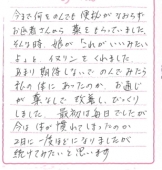 今まで何をのんでも便秘がなおらず
お医者さんから薬をもらっていました。
そんな時、娘が「これがいいみたい
よ」と イヌリンを くれました
あまり期待しないで のんでみたら
私の体に あったのか、お通じ
が 薬なしで 改善し、びっくり
しました。 最初は毎日でしたが
今は 体が慣れてしまったのか
2日に一度ほどになりましたが
続けてみたいと思います